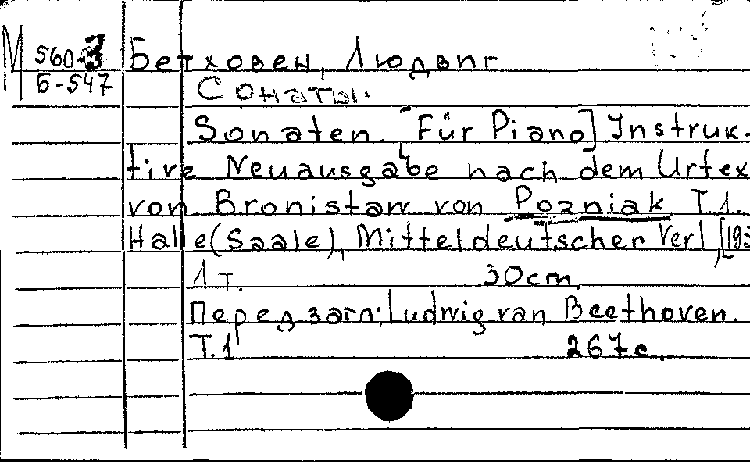 М 560-3 Бетховен, Людвиг
Б-547
Сонаты.
Sonaten. [Für Piano] Instruk-
tive Neuausgabe nach dem Urtex
von Bronislaw von Pozniak T.1.
Halle (Saale), Mitteldeutscher Verl, [195
1 т. 30cm.
Перед загл: Ludwig van Beethoven.
Т.1 267с.